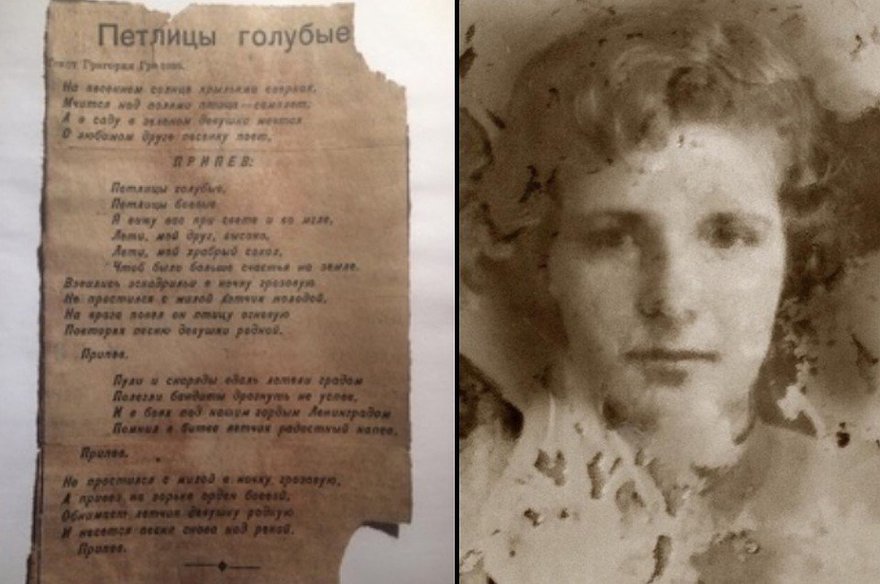 Петлицы голубые
Текст Григория
На весеннем солнце крыльями сверкая,
Мчится над полями птица—самолет;
А в саду в зеленом девушка мечтая
О любимом друге песенку поет,
ПРИПЕВ:
Петлицы голубые,
Петлицы боевые
Я вижу вас при свете и во мгле,
Лети, мой друг, высоко,
Лети, мой храбрый сокол,
Чтоб было больше счастья на земле.
Взвились эскадрильи в ночку грозовую
Не простился с милой летчик молодой,
На врага повел он птицу огневую
Повторяя песню девушки родной.
Припев.
Пули и снаряды вдаль летели градом
Полегли бандиты дрогнуть не успев,
И в боях под нашим гордым Ленинградом
Помнил в битве летчик радостный напев.
Припев.
Не простился с милой в ночку грозовую,
А привез на зорьке орден боевой,
Обнимает летчик девушку родную
И несется песня снова над рекой.
Припев.